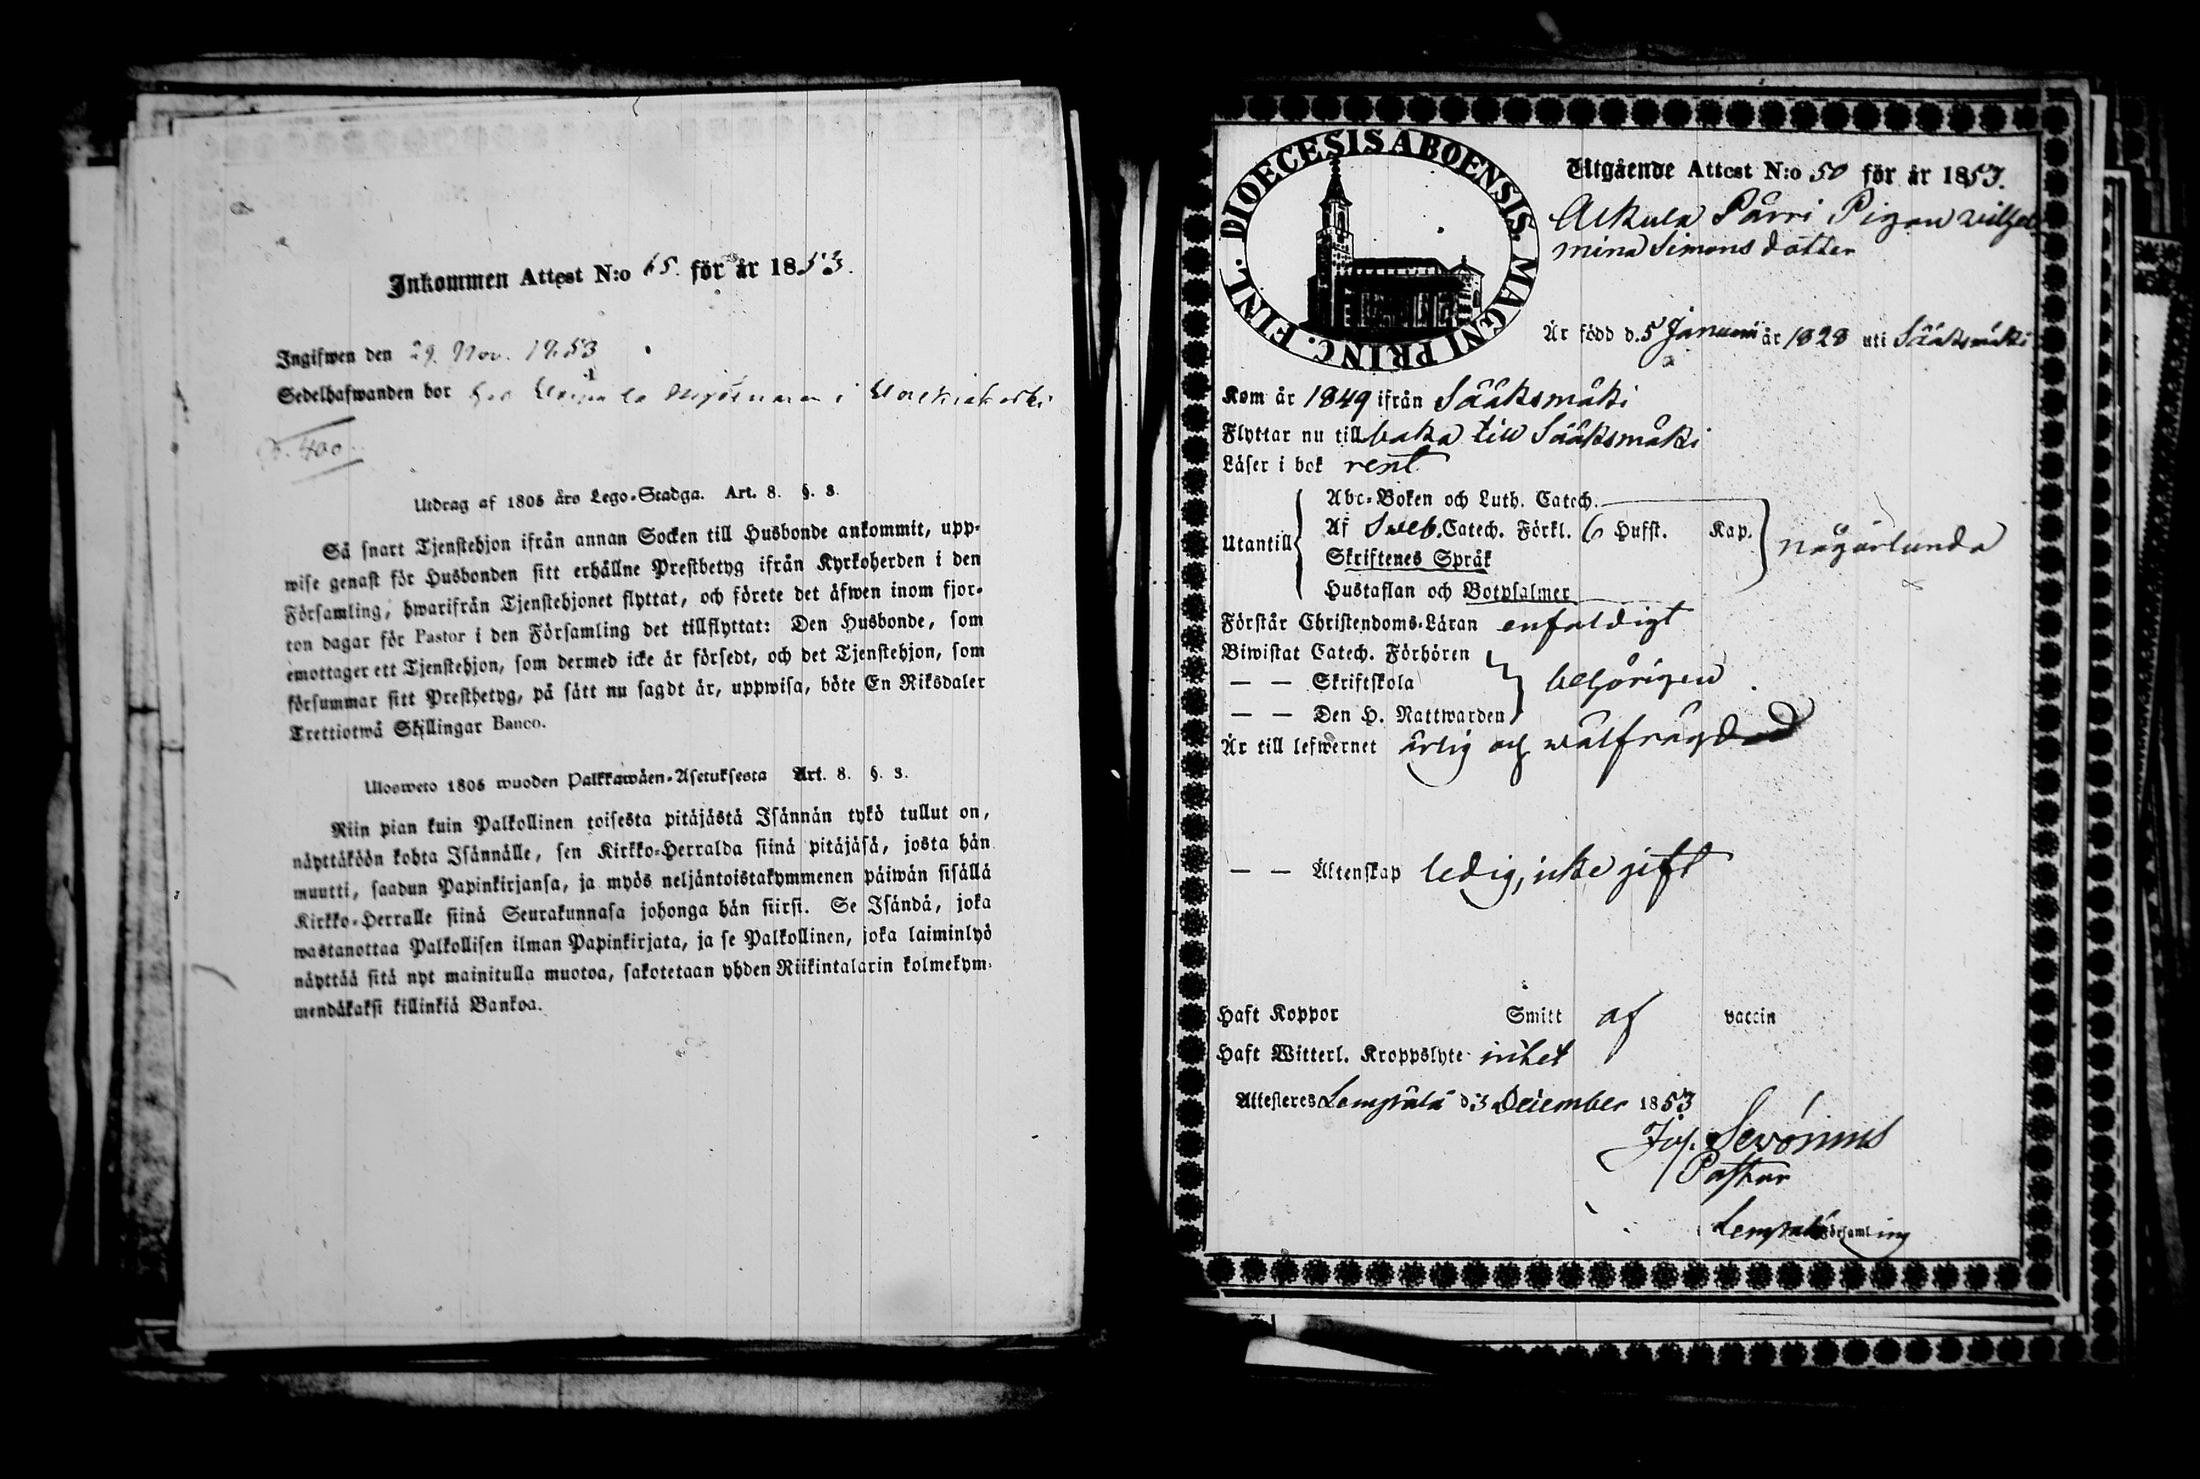 Inkommen Attest N:o 65. för år 1853.
Ingifwen den 29. Nov. 1853
Sedelhafwanden bor hos i
F. 400
Utdrag af 1805 års Lego-Stadga. Art. 8. §. 3.
Så snart Tjenstehjon ifrån annan Socken till Husbonde ankommit, upp-
wise genast för Husbonden sitt erhållne Prestbetyg ifrån Kyrkoherden i den
Församling, hwarifrån Tjenstehjonet flyttat, och förete det äfwen inom fjor-
ton dagar för Pastor i den Församling det tillflyttat: Den Husbonde, som
emottager ett Tjenstehjon, som dermed icke är försedt, och det Tjenstehjon, som
försummar sitt Prestbetyg, på sätt nu sagdt är, uppwisa, böte En Riksdaler
Trettiotwå Skillingar Banco.
Ulosweto 1805 wuoden Palkkawäen-Asetuksesta Art. 8. §. 3.
Niin pian kuin Palkollinen toisesta pitäjästä Isännän tykö tullut on,
näyttäköön kohta Isännälle, sen Kirkko-Herralda siinä pitäjäsä, josta hän
muutti, saadun Papinkirjansa, ja myös neljäntoistakymmenen päiwän sisällä
Kirkko-Herralle siinä Seurakunnasa johonga hän siirsi. Se Isändä, joka
wastanottaa Palkollisen ilman Papinkirjata, ja se Palkollinen, joka laiminlyö
näyttää sitä nyt mainitulla muotoa, sakotetaan yhden Riikintalarin kolmekym-
mendäkaksi killinkiä Bankoa.
DIOECESIS ABOENSIS. MAGNI PRINC. FINL.
Utgående Attest N:o 50 för år 1853.
Alkula Pärri Pigan Wilhel-
mina Simons dotter
Är född d. 5 Januarii år 1828 uti Sääksmäki
Kom år 1849 ifrån Sääksmäki
Flyttar nu tillbaka till Sääksmäki
Läser i bok rent
Utantill
Abc-Boken och Luth. Catech.
Af Sveb. Catech. Förkl. 6 Hufst. Kap.
någorlunda
Skriftenes Språk
Hustaflan och Botpsalmer
Förstår Christendoms-Läran enfaldigt
Biwistat Catech. Förhören
— — Skriftskola behörigen
— — Den H. Nattwarden
Är till lefwernet ärlig och wälfrägdad
— — Äktenskap ledig, icke gift
Haft Koppor Smitt af vaccin
Haft Witterl. Kroppslyte intet
Attesteres Lempälä d 3 December 1853
Jos. Sevónius
Pastor
i Lempälä Församling